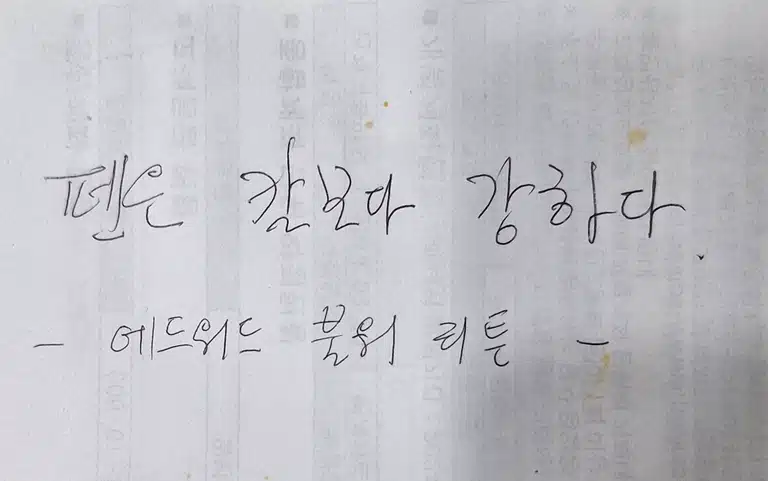 펜은 칼보다 강하다.
- 에드워드 불워 리튼 -